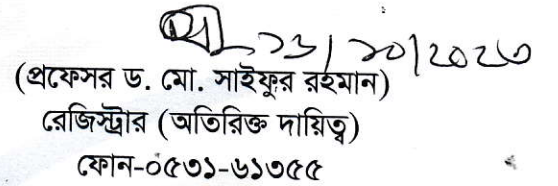 ২১/১০/২০২৩
(প্রফেসর ড. মো. সাইফুর রহমান)
রেজিস্ট্রার (অতিরিক্ত দায়িত্ব)
ফোন-০৫৩১-৬১৩৫৫